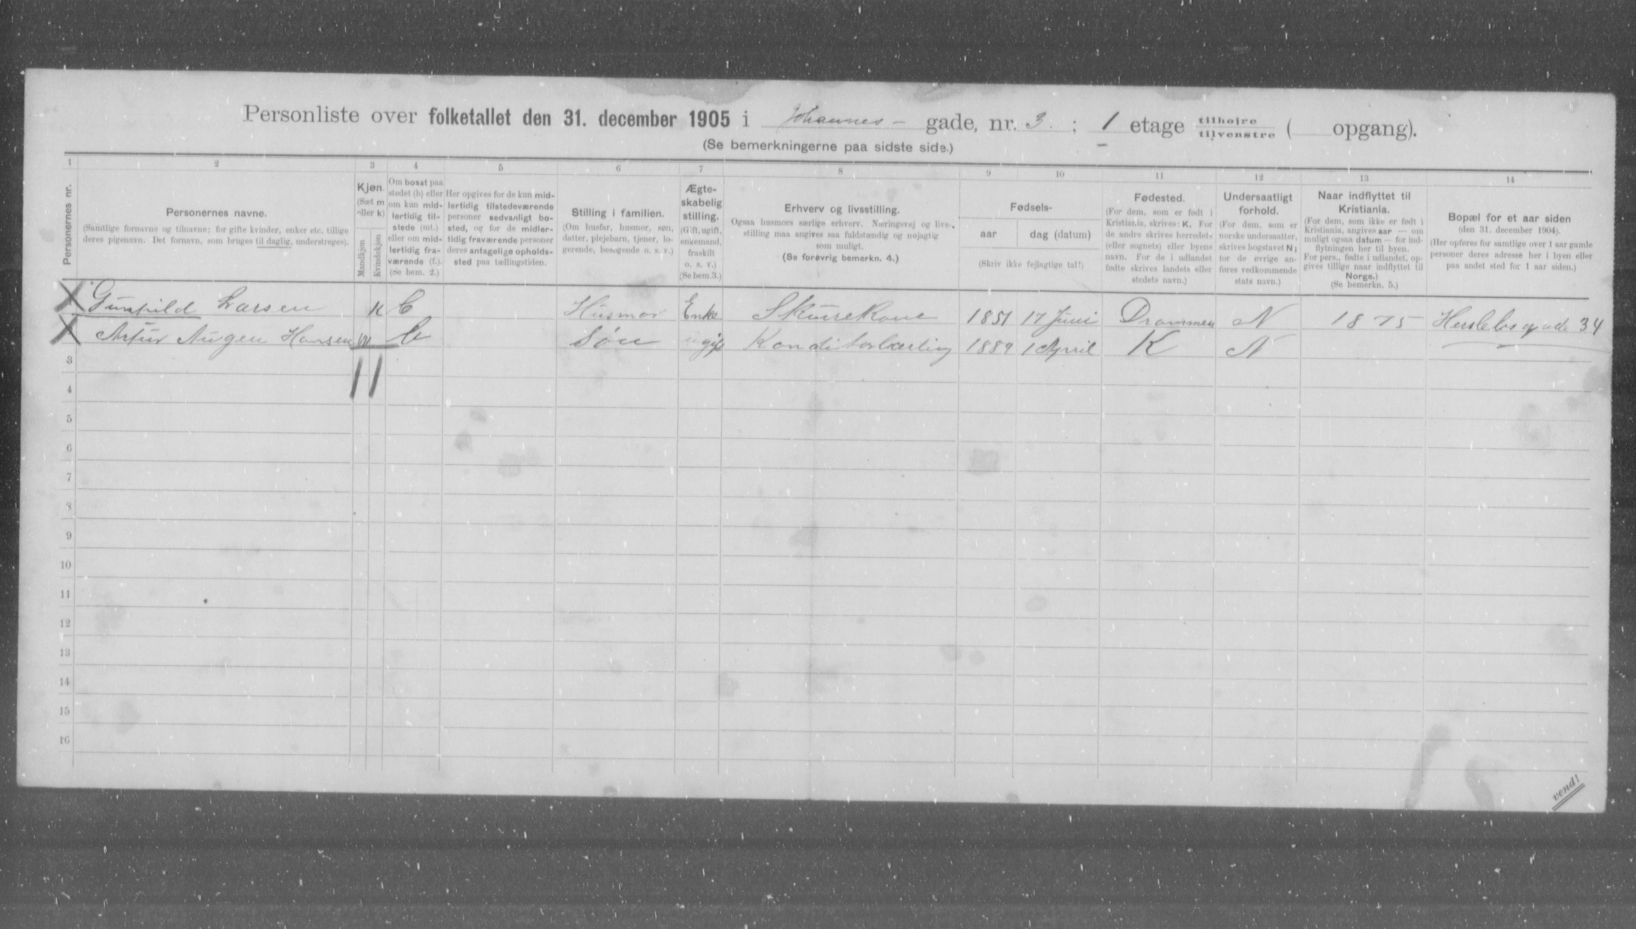 Personliste over folketallet den 31. december 1905 i Johannes- gade, nr. 3. ; 1 etage tilhøjre tilvenstre ( opgang).
(Se bemerkningerne paa sidste side.)
1 2 3 4 5 6 7 8 9 10 11 12 13 14
Personernes nr.
Personernes navne.
(Samtlige fornavne og tilnavne; for gifte kvinder, enker etc. tillige deres pigenavn. Det fornavn, som bruges til daglig, understreges).
Kjøn.
(Sæt m eller k)
Mandkjøn.
Kvindekjøn.
Om bosat paa stedet (b) eller om kun midlertidig tilstede (mt.) eller om midlertidig fraværende (f.). (Se bem. 2.)
Her opgives for de kun midlertidig tilstedeværende personer sedvanligt bosted, og for de midlertidig fraværende personer deres antagelige opholdssted paa tællingstiden.
Stilling i familien.
(Om husfar, husmor, søn, datter, plejebarn, tjener, logerende, besøgende o. s. v.)
Ægteskabelig stilling.
(Gift, ugift, enkemand, fraskilt o. s. v.)
(Se bem. 3.)
Erhverv og livsstilling.
Ogsaa husmors særlige erhverv. Næringsvej og livsstilling maa angives saa fuldstændig og nøjagtig som muligt.
(Se forøvrig bemerkn. 4.)
Fødsels-
aar dag (datum)
(Skriv ikke fejlagtige tal!)
Fødested.
(For dem, som er født i Kristiania, skrives: K. For de andre skrives herredets (eller sognets) eller byens navn. For de i udlandet fødte skrives landets eller stedets navn.)
Undersaatligt forhold.
(For dem, som er norske undersaatter, skrives bogstavet N; for de øvrige anføres vedkommende stats navn.)
Naar indflyttet til Kristiania.
(For dem, som ikke er født i Kristiania, angives aar — om muligt ogsaa datum — for indflytningen her til byen. For pers., fødte i udlandet, opgives tillige naar indflyttet til Norge.)
(Se bemerkn. 5.)
Bopæl for et aar siden
(den 31. december 1904).
(Her opføres for samtlige over 1 aar gamle personer deres adresse her i byen eller paa andet sted for 1 aar siden.)
Gunhild Larsen K b Husmor Enke Skurekone 1851 17 Juni Drammen N 1875 Herslebsgade 34
Artur Hansen m b Søn ugift Konditorlærling 1889 1 April K N
3
4
5
6
7
8
9
10
11
12
13
14
15
16
vend!